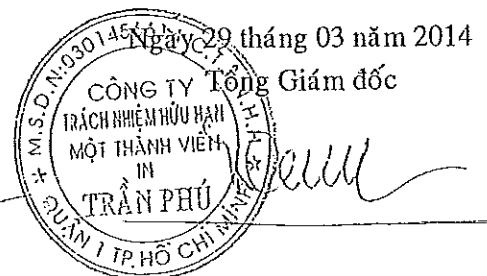 Ngày 29 tháng 03 năm 2014
Tổng Giám đốc
CÔNG TY
TRÁCH NHIỆM HỮU HẠN
MỘT THÀNH VIÊN
IN
TRẦN PHÚ
QUẬN 1 TP. HỒ CHÍ MINH